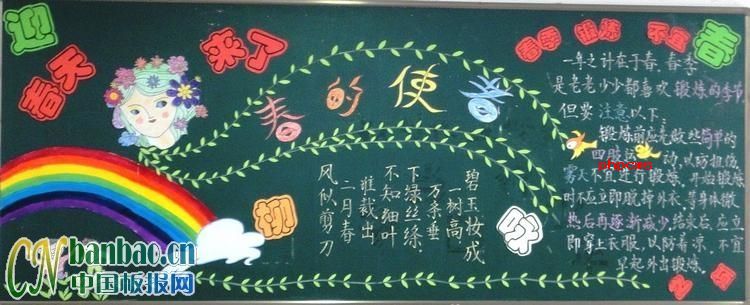 迎
春天
来了
春的使者
咏
柳
碧玉妆成
一树高
万条垂
下绿丝绦
不知细叶
谁裁出
二月春
风似剪刀
春季 锻炼 不宜
春
一年之计在于春,春季
是老老少少都喜欢锻炼的季节,
但要注意以下:
锻炼前应先做些简单的
四肢 动,以防扭伤
雾天不宜进行锻炼.开始锻炼
时不应立即脱掉外衣,等身体微
热后再逐渐减少,结束后,应立
即穿上衣服,以防着凉,不宜
早起外出锻炼.
CN banbao.cn
中国板报网